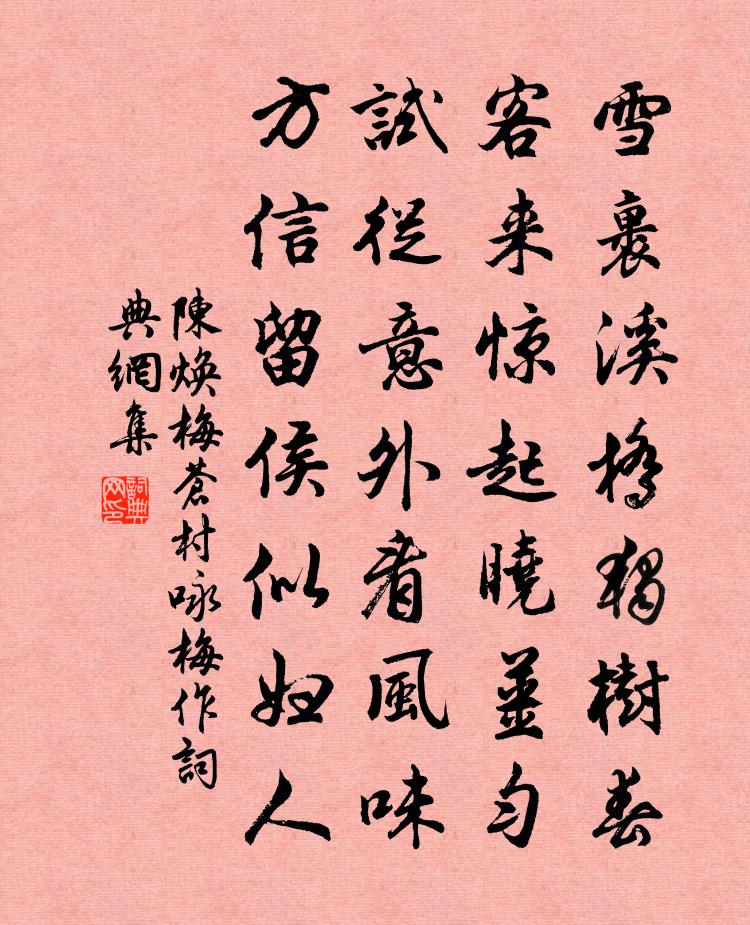 雪裏溪橋獨樹春
客来惊起曉薑匀
試從意外看風味
方信留侯似婦人
陳焕梅蒼村咏梅作詞
典網集
詞典
网印